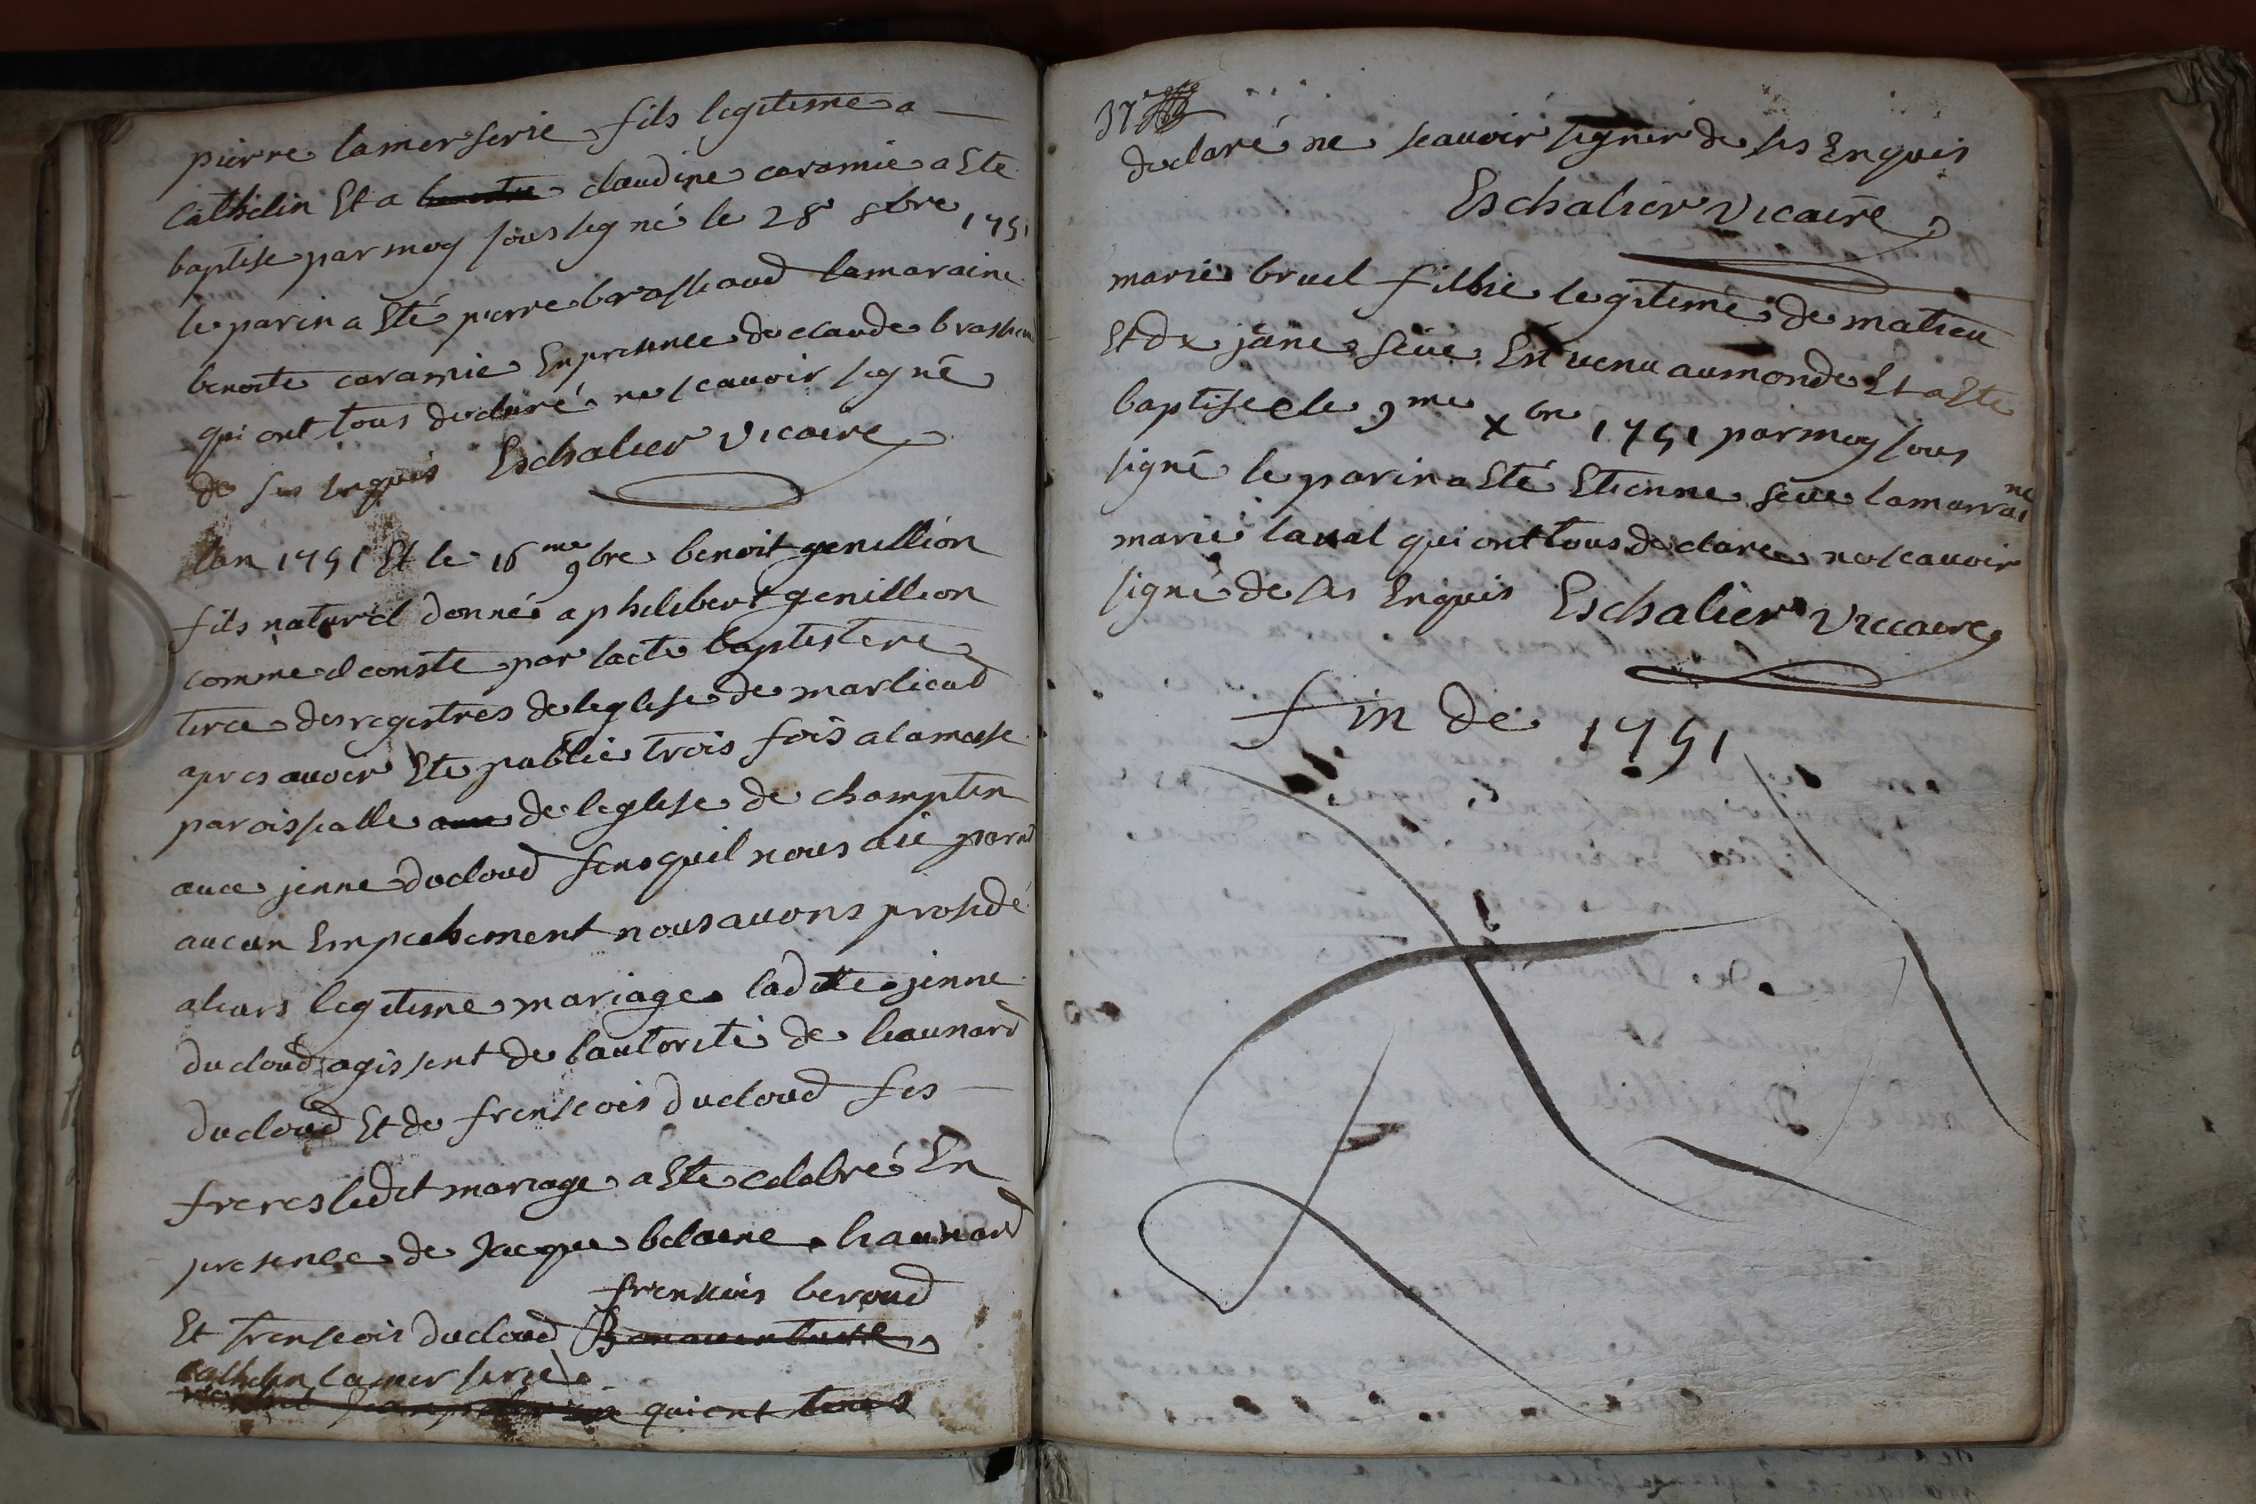 pierre lamerserie fils legitime a
Cathelin Et a claudine caramie a Ete
baptise par moy sous signé le 28 8bre 1751
le parin a Eté pierre brossaud lamaraine
benoite caramie En presence de claude
qui ont tous declaré ne scavoir signé
de ses Enquis Eschalier vicaire
lan 1751 Et le 16me 9bre benoit genillion
fils naturel donné a philibert genillion
comme il conste par lacte baptistere
tiree des registres de leglise de marlieud
apres avoir Ete publie trois fois a la messe
paroissialle de leglise de champtin
avec jenne ducloud sens quil nous aie parut
aucun Empechement nous avons prosidé
a leurs legitime mariage ladite jenne
ducloud agissent de lautorité de leaunard
ducloud Et de frenseois ducloud ses
freres ledit mariage a Ete celebré En
presence de Jacque belaine leaunard
frenseois beroud
Et frenseois ducloud
Cathelin lamerserie
qui ont tous
37e
declaré ne scavoir signer de ses Enquis
Eschalier vicaire
marie bruel fillie legitime de matieu
Et de jane seve Est venu au monde Et a Ete
baptisee le 9me xbre 1751 par moy sous
signé le parin a Eté Etienne seve lamarraine
marie laval qui ont tous declare ne scavoir
signé de ses Enquis Eschalier viccaire
fin de 1751